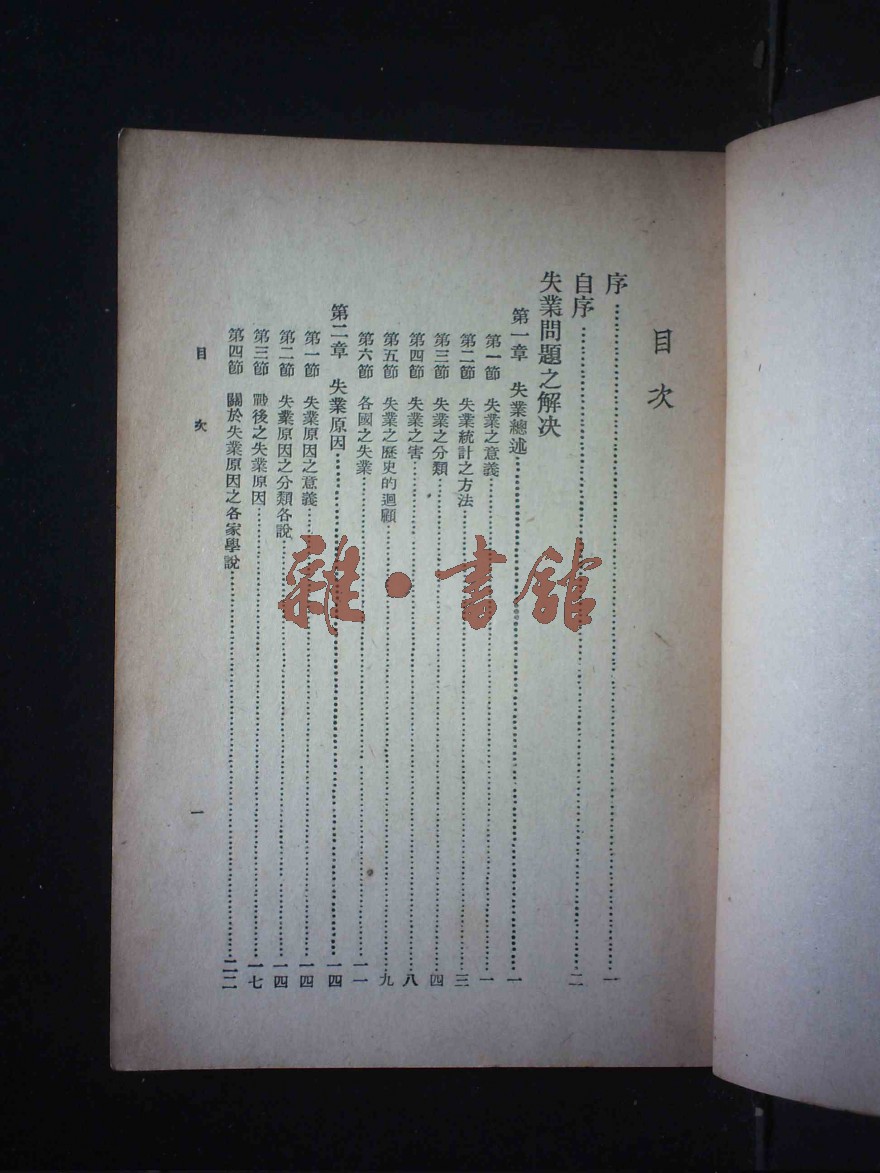 目次
序……一
自序……二
失業問題之解決
第一章 失業總述……一
第一節 失業之意義……一
第二節 失業統計之方法……三
第三節 失業之分類……四
第四節 失業之害……八
第五節 失業之歷史的迴顧……九
第六節 各國之失業……一一
第二章 失業原因……一四
第一節 失業原因之意義……一四
第二節 失業原因之分類各說……一四
第三節 戰後之失業原因……一七
第四節 關於失業原因之各家學說……二二
目次 一
雜·書館